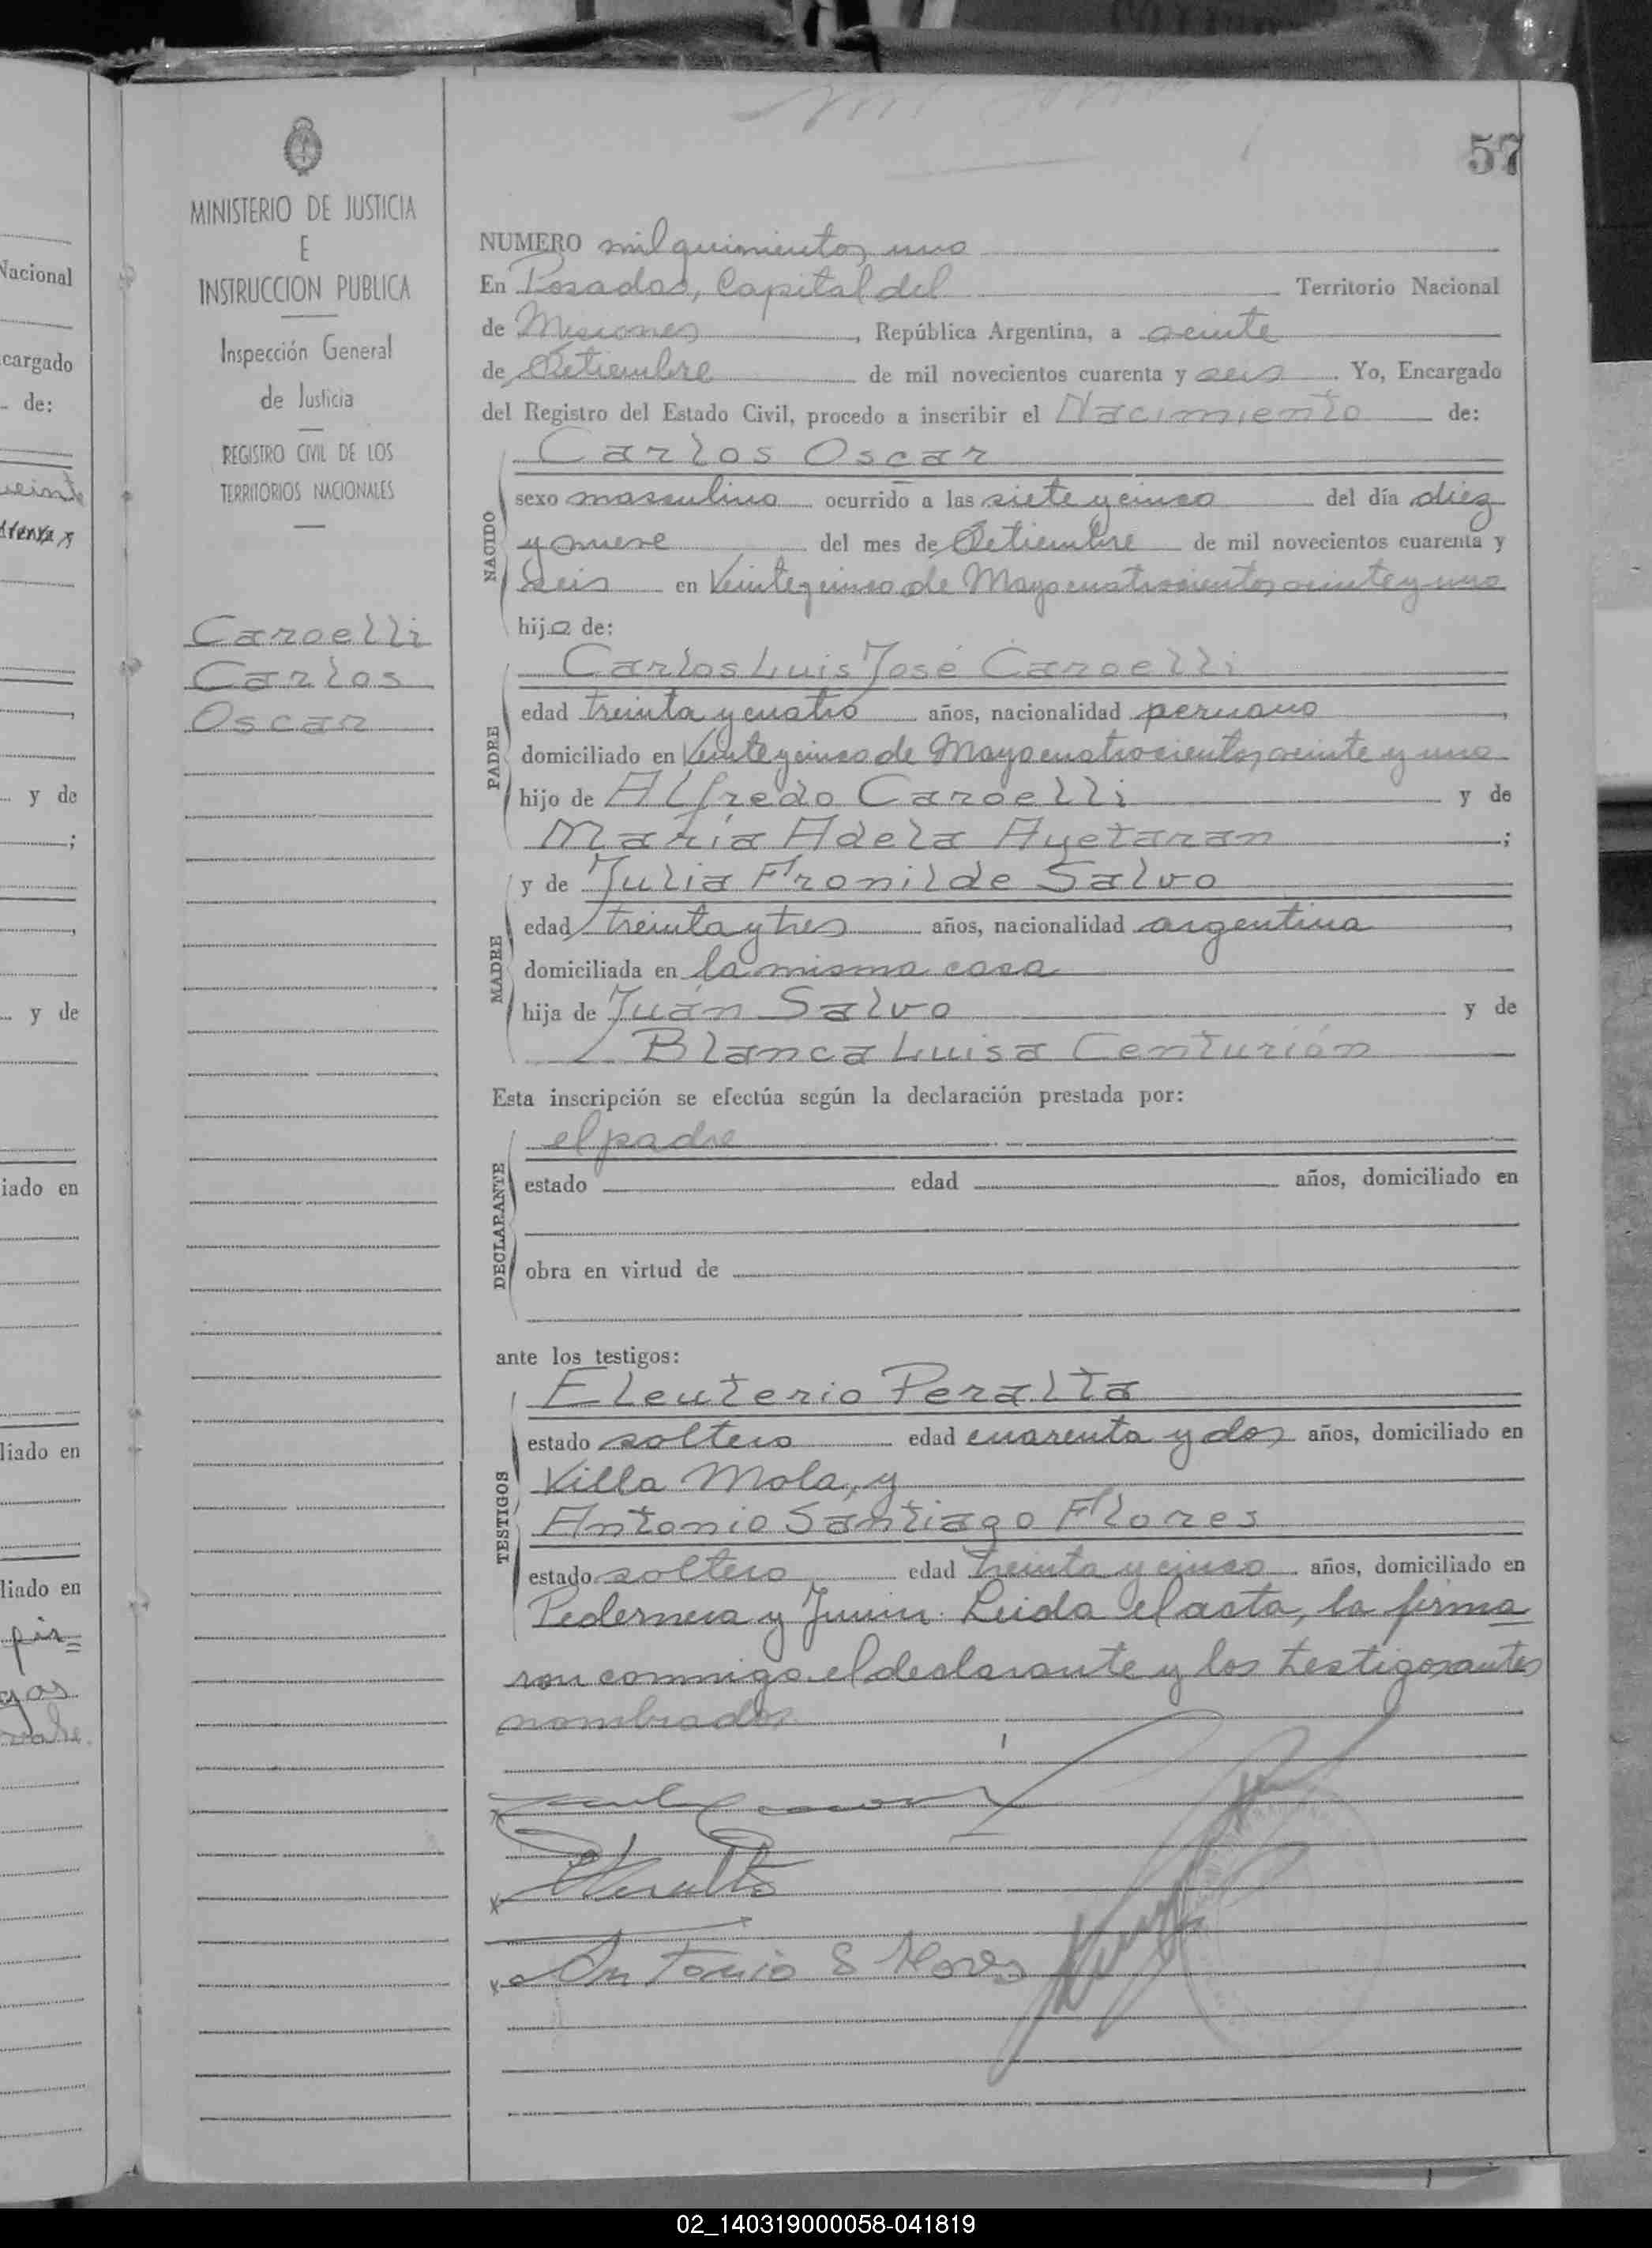 57
MINISTERIO DE JUSTICIA
E
INSTRUCCION PUBLICA
Inspección General
de Justicia
REGISTRO CIVIL DE LOS
TERRITORIOS NACIONALES
Caroelli
Carlos
Oscar
NUMERO mil quinientos uno
En Posadas, Capital del Territorio Nacional
de Misiones, República Argentina, a veinte
de Setiembre de mil novecientos cuarenta y seis. Yo, Encargado
del Registro del Estado Civil, procedo a inscribir el Nacimiento de:
NACIDO
Carlos Oscar
sexo masculino ocurrido a las siete y cinco del día diez
y nueve del mes de Setiembre de mil novecientos cuarenta y
seis en Veinte y cinco de Mayo cuatrocientos veinte y uno
hijo de:
PADRE
Carlos Luis José Caroelli
edad treinta y cuatro años, nacionalidad peruano,
domiciliado en Veinte y cinco de Mayo cuatrocientos veinte y uno
hijo de Alfredo Caroelli y de
María Adela Ayetaran;
MADRE
y de Julia Fronilde Salvo
edad treinta y tres años, nacionalidad argentina,
domiciliada en la misma casa
hija de Juán Salvo y de
Blanca Luisa Centurión
Esta inscripción se efectúa según la declaración prestada por:
DECLARANTE
el padre
estado edad años, domiciliado en
obra en virtud de
ante los testigos:
TESTIGOS
Eleuterio Peralta
estado soltero edad cuarenta y dos años, domiciliado en
Villa Mola, y
Antonio Santiago Flores
estado soltero edad treinta y cinco años, domiciliado en
Pedernera y Junin. Leida el acta, la firma
ron conmigo el declarante y los testigos antes
nombrados.
Peralta
Antonio S Flores
Nacional
cargado
de:
veinte
y de
;
y de
iado en
liado en
liado en
02_140319000058-041819